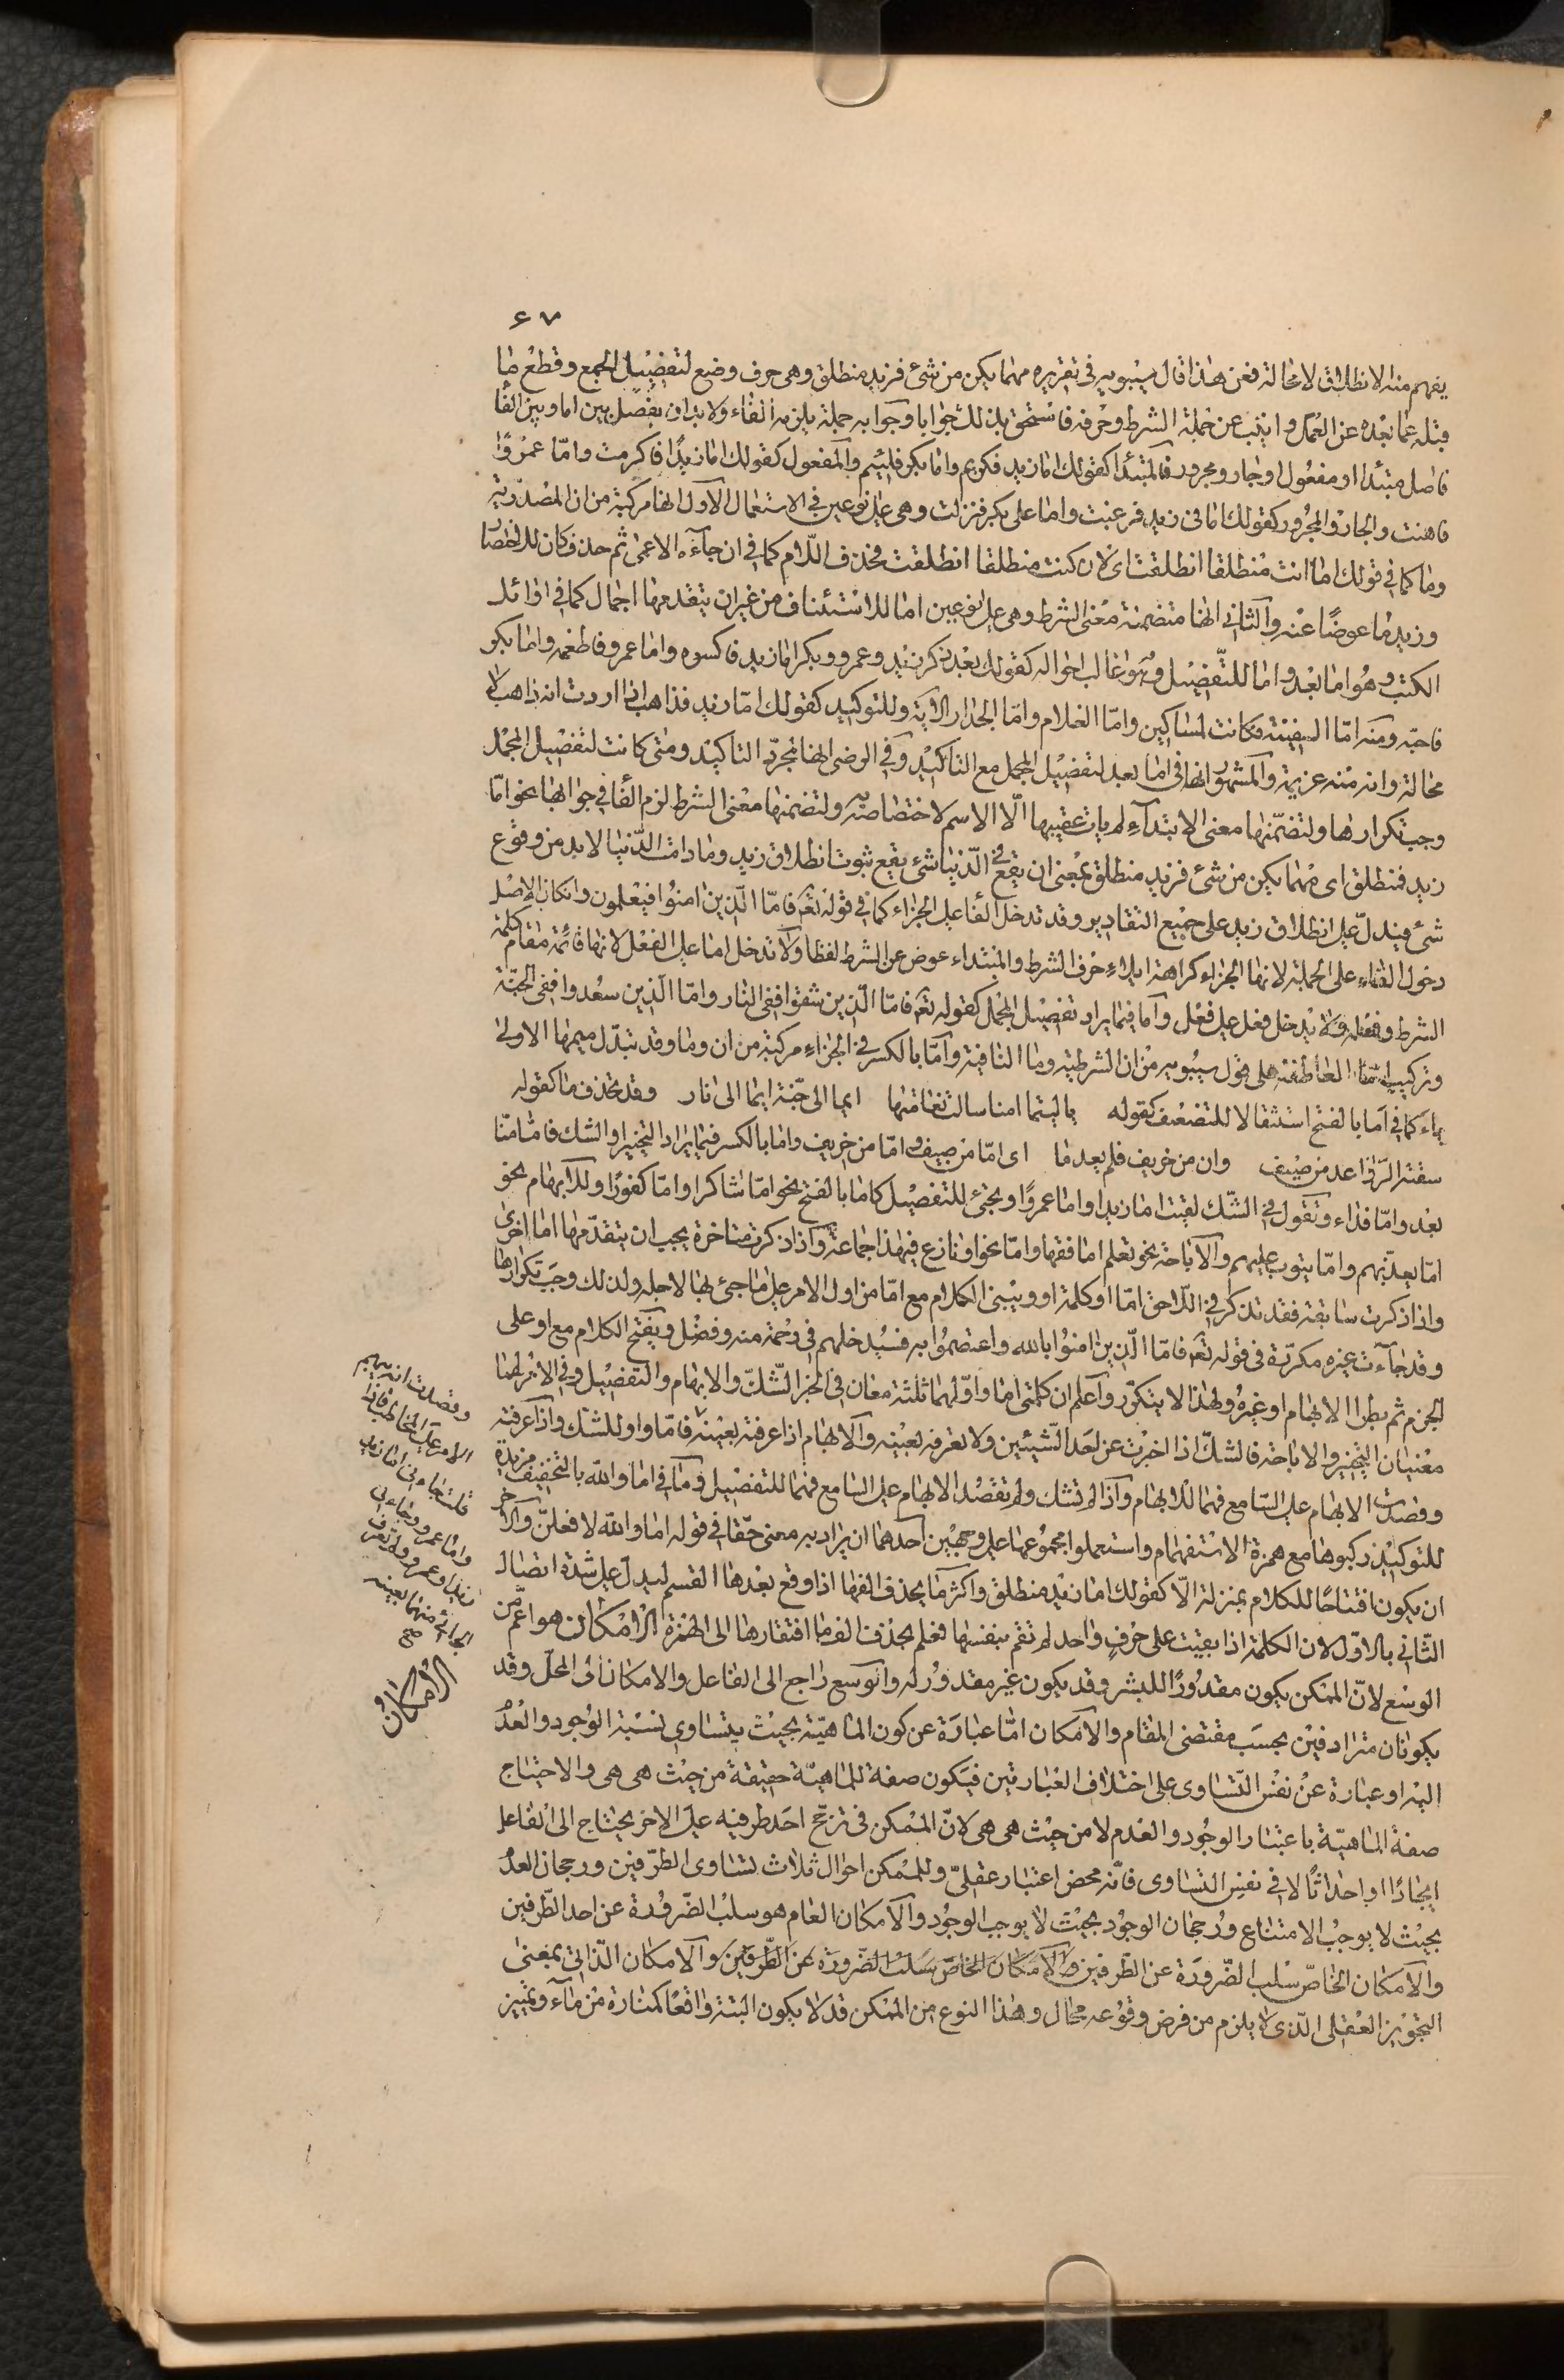 ٦٧
يفهم منه الانطلاق لا محالة فعن هذا قال سيبويه فى تقريره مهما يكن من شئ فزيد منطلق وهى حرف وضع لتفصيل الجمع وقطع ما
قبله عما بعده عن العمل وانيب عن جملة الشرط وحرفه فاستحق بذلك جوابا وجوابه جملة يلزمه الفاء ولا بد ان يفصل بين اما وبين الفا
فاصل مبتدا او مفعول او جار ومجرور فالمبتدا كقولك اما زيد فكريم واما بكر فلئيم والمفعول كقولك اما زيدا فاكرمت واما عمروا
فاهنت والجار والمجرور كقولك اما فى زيد فرغبت واما على بكر فنزلت وهى على نوعين فى الاستعمال الاول انها مركبة من ان المصدرية
وما كما فى قولك اما انت منطلقا انطلقت اى لان كنت منطلقا انطلقت فحذف اللام كما فى ان جآءه الاعمى ثم حذف كان للاختصا
وزيد ما عوضا عنه والثانى انها متضمنة معنى الشرط وهى على نوعين اما للاستئناف من غير ان يتقدمها اجمال كما فى اوائل
الكتب وهو اما بعد واما للتفصيل وهو غالب احواله كقولك بعد ذكر زيد وعمرو وبكر اما زيد فاكسوه واما عمرو فاطعمه واما بكر
فاحبه ومنه امّا السفينة فكانت لمساكين وامّا الغلام وامّا الجدار الاية وللتوكيد كقولك امّا زيد فذاهب اذا اردت انه ذاهب لا
محالة وانه منه عزيمة والمشهور انها فى اما بعد لتفصيل المجمل مع التاكيد وفى الرضى انها لمجرد التاكيد ومتى كانت لتفصيل المجمل
وجب تكرارها ولتضمّنها معنى الابتدآء لم يات عقيبها الّا الاسم لاختصاصه به ولتضمنها معنى الشرط لزم الفا فى جوابها نحو امّا
زيد فمنطلق اى مهما يكن من شئ فزيد منطلق بمعنى ان يقع فى الدنيا شئ يقع ثبوت انطلاق زيد وما دامت الدّنيا لا بد من وقوع
شئ فيدلّ على انطلاق زيد على جميع التقادير وقد تدخل الفا على الجزاء كما فى قوله تعه فامّا الّذين امنوا فيعلمون وان كان الاصل
دخول الفاء على الجملة لانها الجزاء كراهة ايلاء حرف الشرط والمبتداء عوض عن الشرط لفظا ولا تدخل اما على الفعل لانها قائمة مقام كلمة
الشرط وفعله فلا يدخل فعل على فعل واما فيما يراد تفصيل المجمل كقوله تعه فامّا الّذين شقوا ففى النار وامّا الّذين سعدوا ففى الجنّة
وتركيب امّا العاطفة على قول سيبويه من ان الشرطية وما النافية وامّا بالكسر فى الجزاء مركبة من ان وما وقد تبدّل ميمها الاولى
ياء كما فى امّا بالفتح استثقالا للتضعيف كقوله يا ليتما امنا سالت نعامتها ايما الى جنّة ايما الى نار وقد تحذف ما كقوله
سقته الرّواعد من صيّف وان من خريف فلم يعدما اى امّا من صيف وامّا من خريف واما بالكسر فيما يراد التخيير او الشك فامّا منّا
بعد وامّا فداء وتقول فى الشّك لقيت اما زيدا واما عمروا ويجئ للتفصيل كاما بالفتح نحو امّا شاكرا وامّا كفورا وللابهام نحو
امّا يعذّبهم وامّا يتوب عليهم والاباحة نحو تعلم اما فقها وامّا نحوا ونازع فى هذا جماعة واذا ذكرت متاخرة يجب ان يتقدّمها امّا اخرى
واذا ذكرت سابقة فقد تذكر فى اللاحق امّا او كلمة او ويبنى الكلام مع امّا من اول الامر على ما جئ بها لاجله ولذلك وجب تكرارها
وقد جآءت غير مكررة فى قوله تعه فامّا الّذين امنوا بالله واعتصموا به فسيدخلهم فى رحمة منه وفضل ويفتح الكلام مع او على
الجزم ثم يطرا الابهام او غيره ولهذا لا يتكرّر واعلم ان كلمتى اما واو لهما ثلثة معان فى الخبر الشّكّ والابهام والتفصيل وفى الامر لهما
معنيان التخيير والاباحة فالشكّ اذا اخبرت عن احد الشيئين ولا تعرفه بعينه والابهام اذا عرفته بعينه فامّا واو للشك واذا عرفته
وقصدت الابهام على السّامع فهما للابهام واذا لم تشك ولم تقصد الابهام على السامع فهما للتفصيل وما فى اما والله بالتخفيف مزيدة
للتوكيد ركبوها مع همزة الاستفهام واستعملوا مجموعها على وجهين احدهما ان يراد به معنى حقّا فى قوله اما والله لافعلنّ والاخر
ان يكون افتتاحًا للكلام بمنزلة الّا كقولك اما زيد منطلق واكثر ما يحذف الفها اذا وقع بعدها القسم ليدل على شدة اتصال
الثّانى بالاوّل لان الكلمة اذا بقيت على حرف واحد لم تقم بنفسها فعلم بحذف الف ما افتقارها الى الهمزة الامكان هو اعم من
الوسع لانّ الممكن يكون مقدورًا للبشر وقد يكون غير مقدور له والوسع راجع الى الفاعل والامكان الى المحلّ وقد
يكونان مترادفين بحسب مقتضى المقام والامكان امّا عبارة عن كون الماهيّة بحيث يتساوى نسبة الوجود والعدم
اليه او عبارة عن نفس التساوى على اختلاف العبارتين فيكون صفة للماهيّة حقيقة من حيث هى هى والاحتياج
صفة الماهيّة باعتبار الوجود والعدم لا من حيث هى هى لانّ الممكن فى ترجّح احد طرفيه على الاخر يحتاج الى الفاعل
ايجادًا او احداثًا لا فى نفس التساوى فانّه محض اعتبار عقلىّ وللممكن احوال ثلاث تساوى الطرّفين ورجحان العدم
بحيث لا يوجب الامتناع ورجحان الوجود بحيث لا يوجب الوجود والامكان العام هو سلب الضّرورة عن احد الطّرفين
والامكان الخاصّ سلب الضّرورة عن الطرفين والامكان الخاصّ سلب الضّرورة عن الطّرفين والامكان الذّاتى بمعنى
التجويز العقلى الّذى لا يلزم من فرض وقوعه محال وهذا النوع من الممكن قد لا يكون البتة واقعًا كمنارة من مآء وتمييز
وقصدت ان يبهم
الامر على المخاطب فاذا
قلت جاءنى اما زيد
واما عمرو وجاءنى
زيد او عمرو ولم تعرف
الجائى منهما بعينه
صح
الامكان